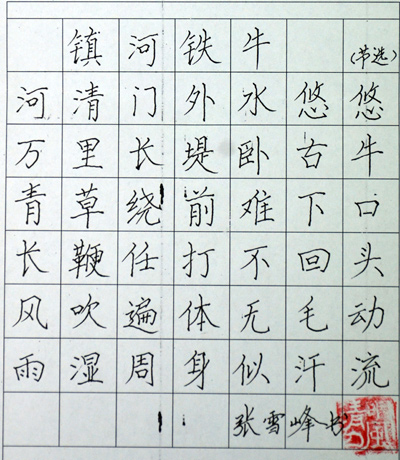 镇河铁牛(节选)
河清门外水悠悠
万里长堤卧古牛
青草绕前难下口
长鞭任打不回头
风吹遍体无毛动
雨湿周身似汗流
张雪峰书